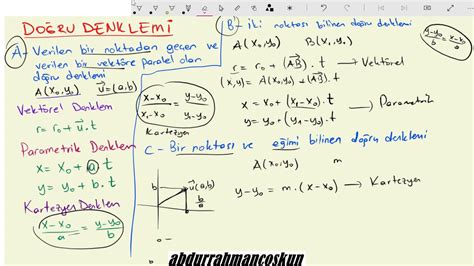 DOĞRU DENKLEMİ
A- Verilen bir noktadan geçen ve
verilen bir vektöre paralel olan
doğru denklemi
A(x₀,y₀) u⃗=(a,b)
Vektörel Denklem
r = r₀ + u⃗.t
Parametrik Denklem
x = x₀ + a.t
y = y₀ + b.t
Kartezyen Denklem
x-x₀/a = y-y₀/b
B- İki noktası bilinen doğru denklemi
A(x₀,y₀) B(x₁,y₁)
x-x₀/a = y-y₀/b
r = r₀ + (AB⃗).t → Vektörel
(x,y) = A(x₀,y₀) + (AB⃗).t
x = x₀ + (x₁-x₀).t
y = y₀ + (y₁-y₀).t → Parametrik
x-x₀/x₁-x₀ = y-y₀/y₁-y₀
Kartezyen
C- Bir noktası ve eğimi bilinen doğru denklemi
A(x₀,y₀) m
y-y₀ = m.(x-x₀) → Kartezyen
b
u⃗(a,b)
b/a
a
abdurrahmancoskun